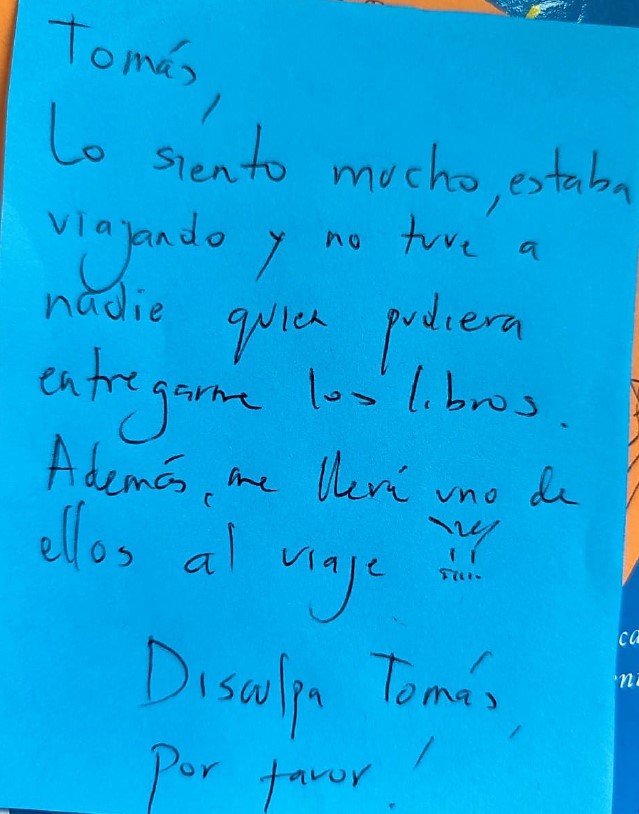 Tomás,
Lo siento mucho, estaba
viajando y no tuve a
nadie quien pudiera
entregarme los libros.
Además, me llevé uno de
ellos al viaje
Disculpa Tomás,
por favor!
ca